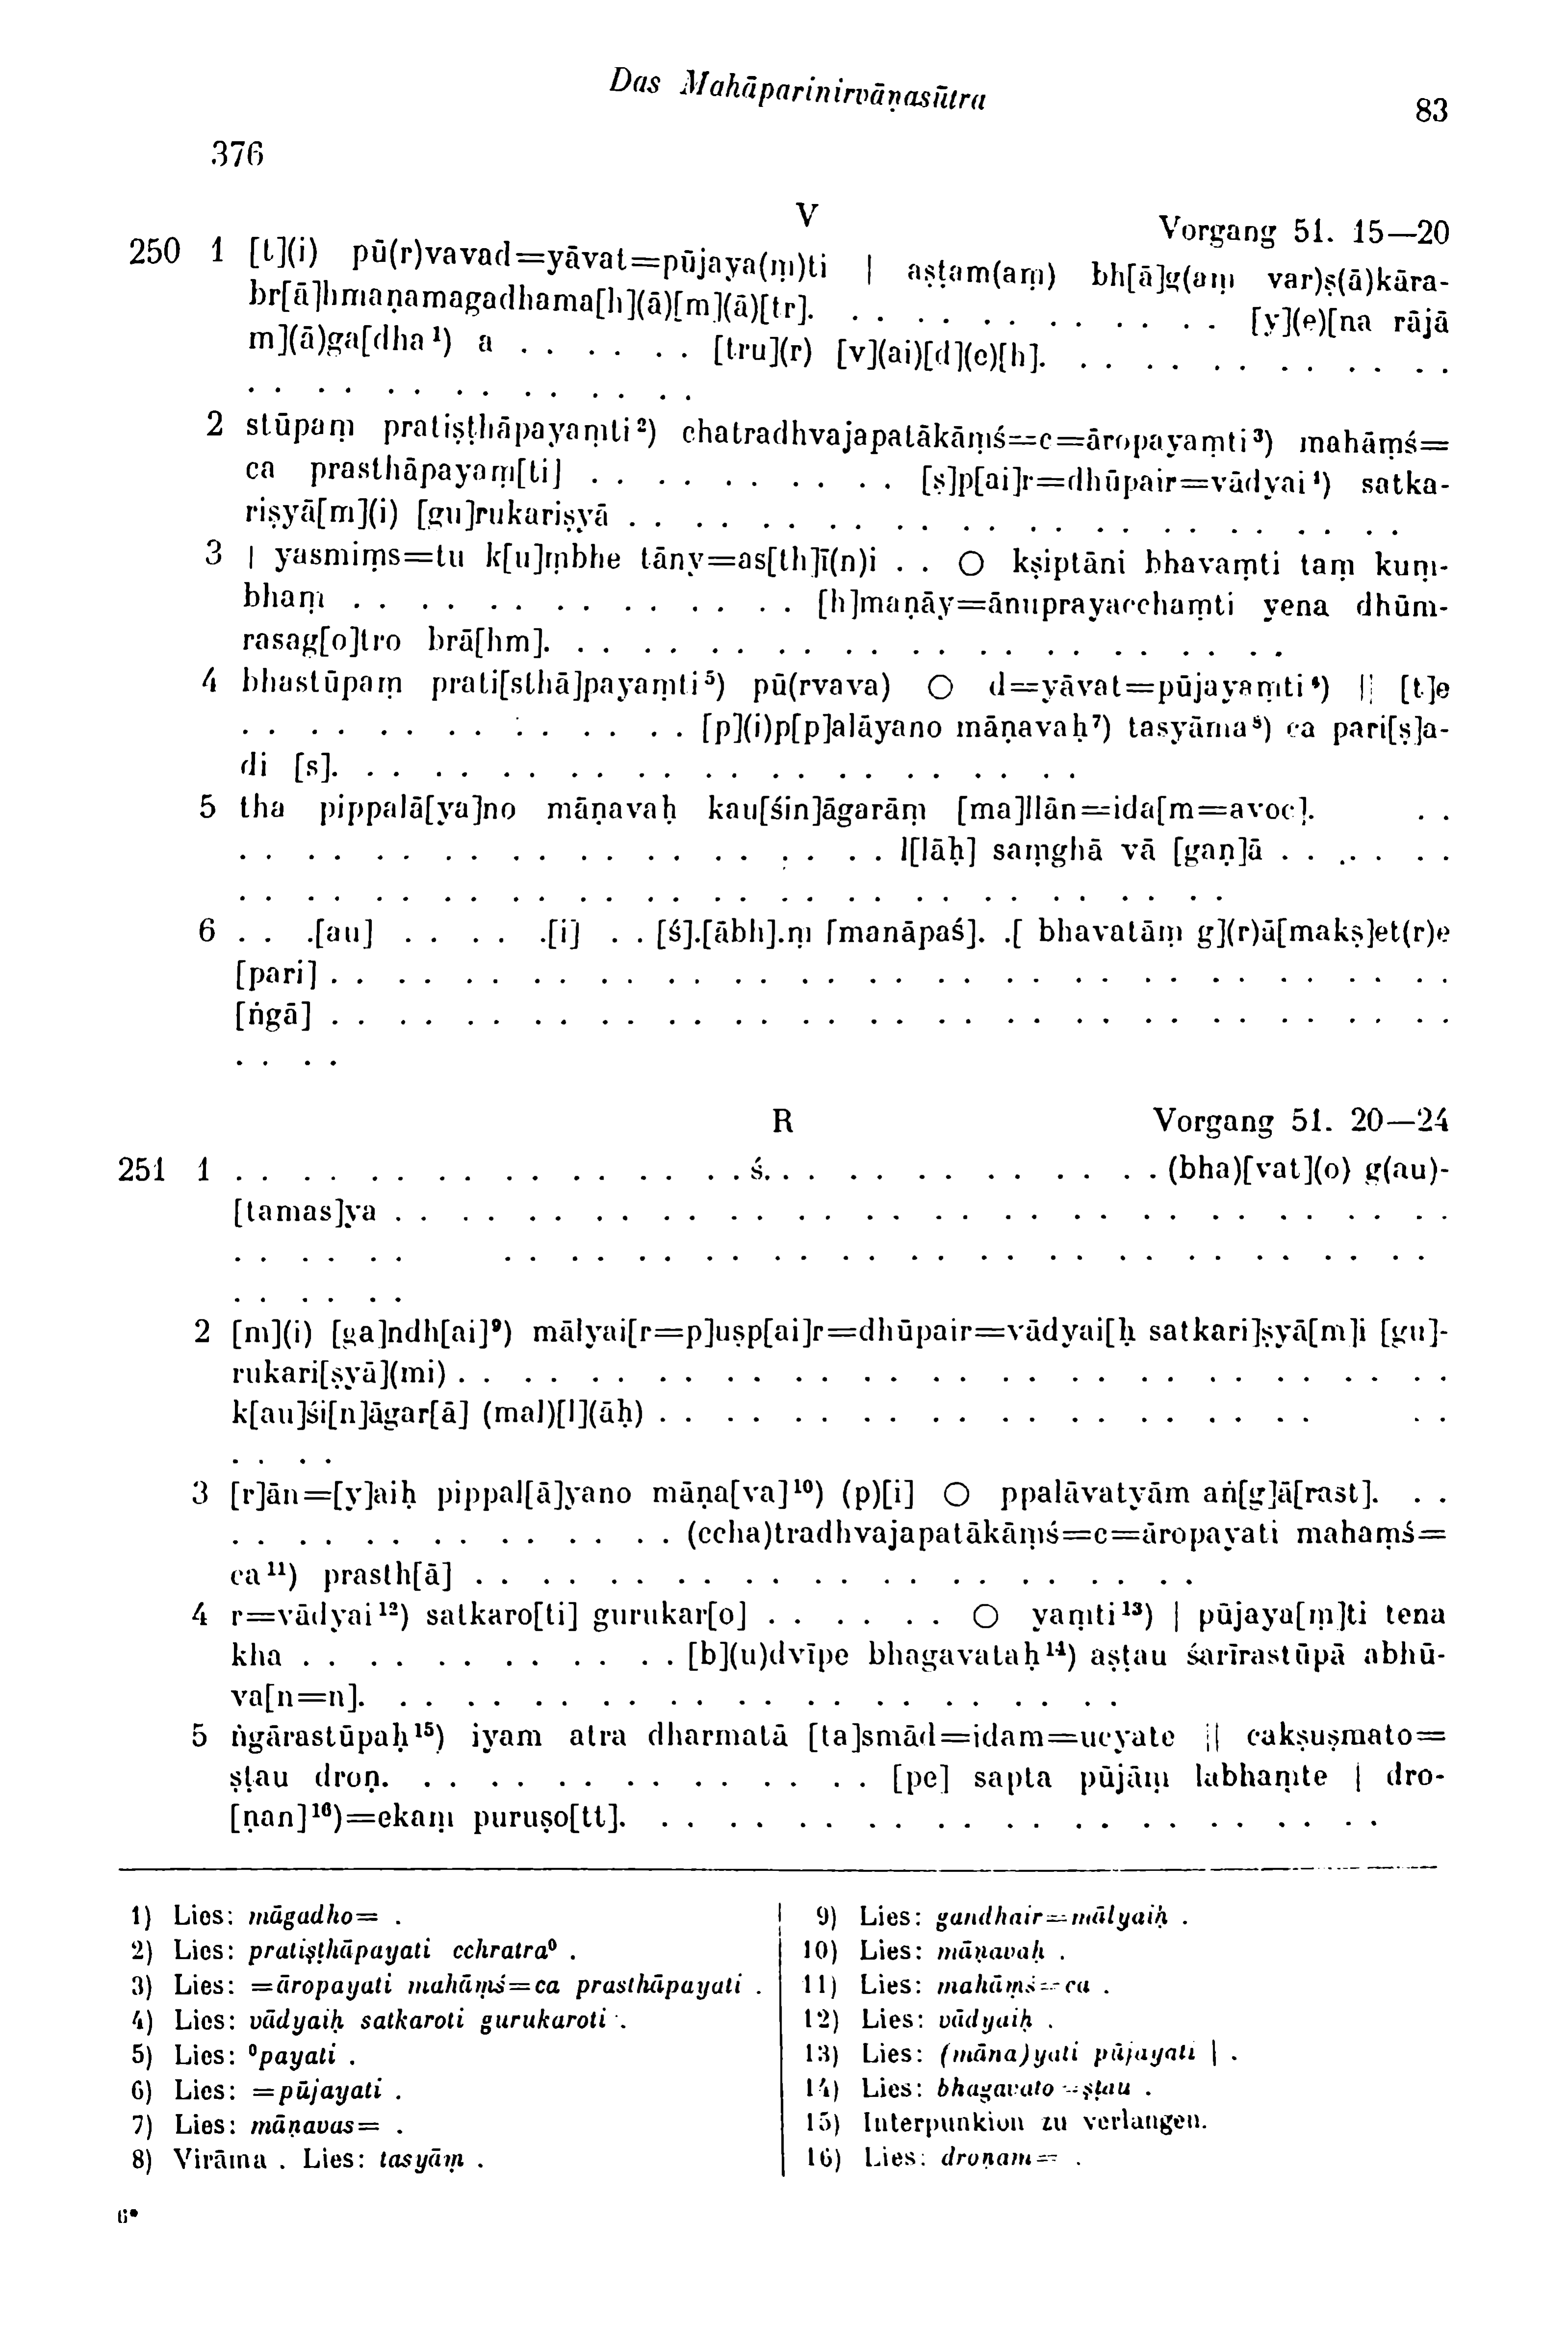 Das Mahāparinirvāṇasūtra
83
376
V
Vorgang 51. 15—20
250 1 [t](i) pū(r)vavad=yāvat=pūjaya(ṃ)ti | aṣṭam(aṃ) bh[ā]g(aṃ var)ṣ(ā)kāra-
br[ā]hmaṇamagadhama[h](ā)[m](ā)[tr]. . . . . . . . . . . . . [y](e)[na rājā
m](ā)ga[dha¹) a . . . . . . [tru](r) [v](ai)[d](e)[h]. . . . . . . . . . . . .
. . . . . . . . . . . . . .
2 stūpaṃ pratiṣṭhāpayaṃti²) chatradhvajapatākāṃś=c=āropayaṃti³) mahāṃś=
ca prasthāpayaṃ[ti] . . . . . . . . . . [ṣ]p[ai]r=dhūpair=vādyai⁴) satka-
riṣyā[m](i) [gu]rukariṣyā . . . . . . . . . . . . . . . . . . . . . . . .
3 | yasmiṃs=tu k[u]ṃbhe tāny=as[th]ī(n)i . . ○ kṣiptāni bhavaṃti taṃ kuṃ-
bhaṃ . . . . . . . . . . . . . . [h]maṇāy=ānuprayacchaṃti yena dhūm-
rasag[o]tro brā[hm]. . . . . . . . . . . . . . . . . . . . . . .
4 bhastūpaṃ prati[sthā]payaṃti⁵) pū(rvava) ○ d=yāvat=pūjayaṃti⁶) || [t]e
. . . . . . . . . . . . . . [p](i)p[p]alāyano māṇavaḥ⁷) tasyāma⁸) ca pari[ṣ]a-
di [s]. . . . . . . . . . . . . . . . . . . . . . .
5 tha pippalā[ya]no māṇavaḥ kau[śin]āgarāṃ [ma]llān=ida[m=avoc]. . .
. . . . . . . . . . . . . . . . . . . . l[lāḥ] saṃghā vā [gaṇ]ā . . . . . . .
. . . . . . . . . . . . . . . . . . . . . . . . . . . . . .
6 . . .[au] . . . . .[i] . . [ś].[ābh].ṃ [manāpaś]. .[ bhavatāṃ g](r)ā[makṣ]et(r)e
[pari] . . . . . . . . . . . . . . . . . . . . . . . . . . . . . . . . . .
[ṅgā] . . . . . . . . . . . . . . . . . . . . . . . . . . . . . . . . . .
. . . .
R
Vorgang 51. 20—24
251 1 . . . . . . . . . . . . . . . . ś. . . . . . . . . . . . . (bha)[vat](o) g(au)-
[tamas]ya . . . . . . . . . . . . . . . . . . . . . . . . . . . . . . . .
. . . . . . . . . . . . . . . . . . . . . . . . . . . . . . . . . .
. . . . . .
2 [m](i) [ga]ndh[ai]⁹) mālyai[r=p]uṣp[ai]r=dhūpair=vādyai[ḥ satkari]ṣyā[m]i [gu]-
rukari[ṣyā](mi) . . . . . . . . . . . . . . . . . . . . . . . . . . . . . .
k[au]śi[n]āgar[ā] (mal)[l](āḥ) . . . . . . . . . . . . . . . . . . . . . .
. . . .
3 [r]ān=[y]aiḥ pippal[ā]yano māṇa[va]¹⁰) (p)[i] ○ ppalāvatyām aṅ[g]ā[rast]. . .
. . . . . . . . . . . . . . (ccha)tradhvajapatākāṃś=c=āropayati mahaṃś=
ca¹¹) prasth[ā] . . . . . . . . . . . . . . . . . . . . . .
4 r=vādyai¹²) satkaro[ti] gurukar[o] . . . . . . ○ yaṃti¹³) | pūjaya[ṃ]ti tena
kha . . . . . . . . . . . . [b](u)dvīpe bhagavataḥ¹⁴) aṣṭau śarīrastūpā abhū-
va[n=n]. . . . . . . . . . . . . . . . . . . . . . .
5 ṅgārastūpaḥ¹⁵) iyam atra dharmatā [ta]smād=idam=ucyate || cakṣuṣmato=
ṣṭau droṇ. . . . . . . . . . . . . . . [pe] sapta pūjāṃ labhaṃte | dro-
[ṇan]¹⁶)=ekaṃ puruṣo[tt]. . . . . . . . . . . . . . . . . . . . . . .
1) Lies: māgadho= .
2) Lies: pratiṣṭhāpayati cchratra⁰ .
3) Lies: =āropayati mahāṃś=ca prasthāpayati .
4) Lies: vādyaiḥ satkaroti gurukaroti .
5) Lies: ⁰payati .
6) Lies: =pūjayati .
7) Lies: māṇavas= .
8) Virāma . Lies: tasyāṃ .
9) Lies: gandhair=mālyaiḥ .
10) Lies: māṇavaḥ .
11) Lies: mahāṃś=ca .
12) Lies: vādyaiḥ .
13) Lies: (māna)yati pūjayati | .
14) Lies: bhagavato=ṣṭau .
15) Interpunkion zu verlangen.
16) Lies: droṇam= .
6*